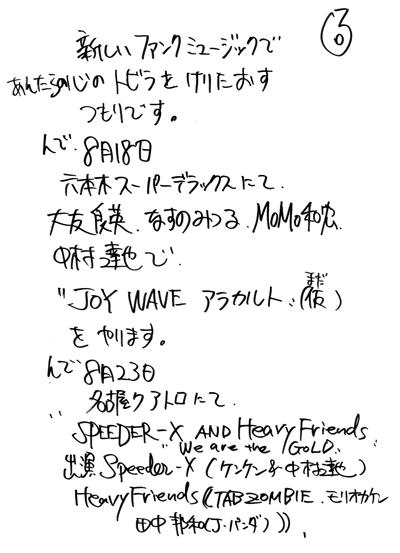 ③
新しいファンクミュージックで
あんたらの心のトビラをけりたおす
つもりです。
んで 8月18日
六本木スーパーデラックスにて、
大友良英、なすのみつる、MoMo和宏、
中村達也で、
"JOY WAVE アラカルト"(仮)
まだ
をやります。
んで 8月23日
名古屋クアトロにて、
"SPEEDER-X AND HeavyFriends"
"We are the GOLD"
出演 Speeder-X (ケンケン&中村達也)
HeavyFriends((TABZOMBIE、モリオカケン
田中邦和(J・パンダ)))、